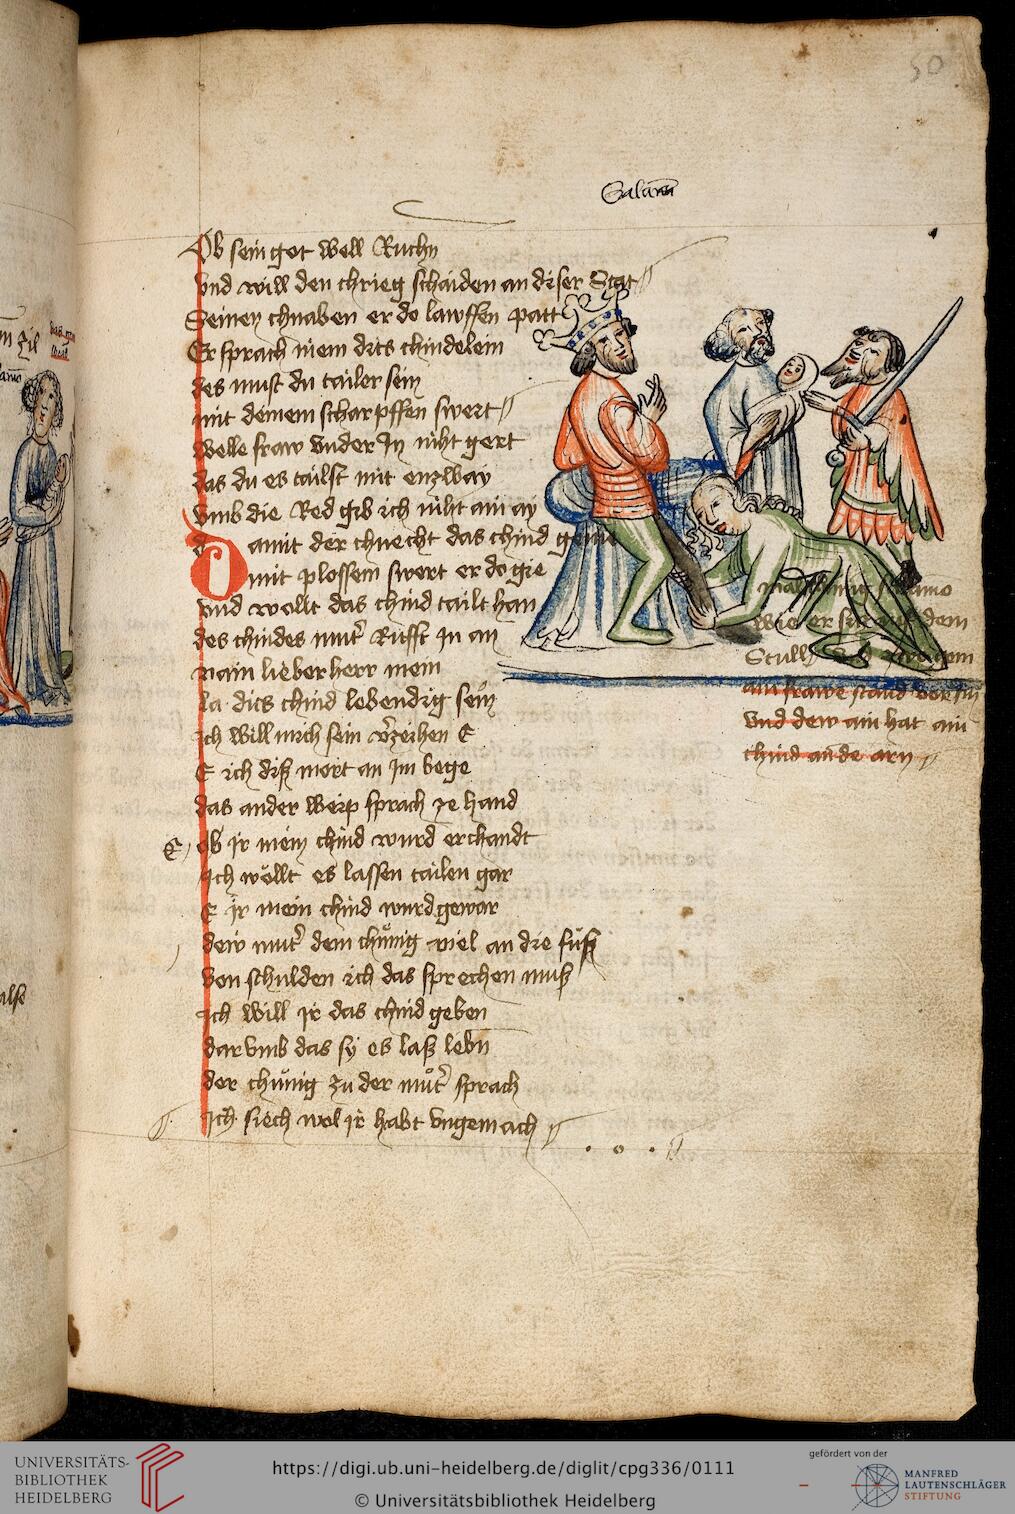 50
Salamon
Ob sein got well Ruchn
vnd will den chrieg schaiden an diser Stat
Seinen chnaben er do lawffen patt
Er sprach mein dits chindelein
des must du tailer sein
mit deinem scharpffen swert
welle fraw vnder In niht gert
das du es tailst mit enzway
vmb die Red gib ich niht ain ay
Damit der chnecht das chind
mit plossem swert er do gie
vnd wollt das chind tailt han
des chindes mutr Rufft In an
nain lieber herr mein
la dits chind lebendig sein
ich will mich sein vrzeihen E
E ich diss mort an Im bege
das ander weip sprach ze hand
E ob ir mein chind wurd erckandt
Ich wollt es lassen tailen gar
E ir mein chind wurd gewar
dew mutr dem chunig viel an die fuss
von schulden ich das sprechen muss
ich will ir das chind geben
dar vmb das sy es lass lebn
der chunig zu der mutr sprach
ich siech wol ir habt vngemach
wie er sitzt auf dem
Stull
ain frawe stand vor im
vnd dew ain hat ain
chind an de arn
UNIVERSITÄTS-
BIBLIOTHEK
HEIDELBERG
https://digi.ub.uni-heidelberg.de/diglit/cpg336/0111
© Universitätsbibliothek Heidelberg
gefördert von der
MANFRED
LAUTENSCHLÄGER
STIFTUNG